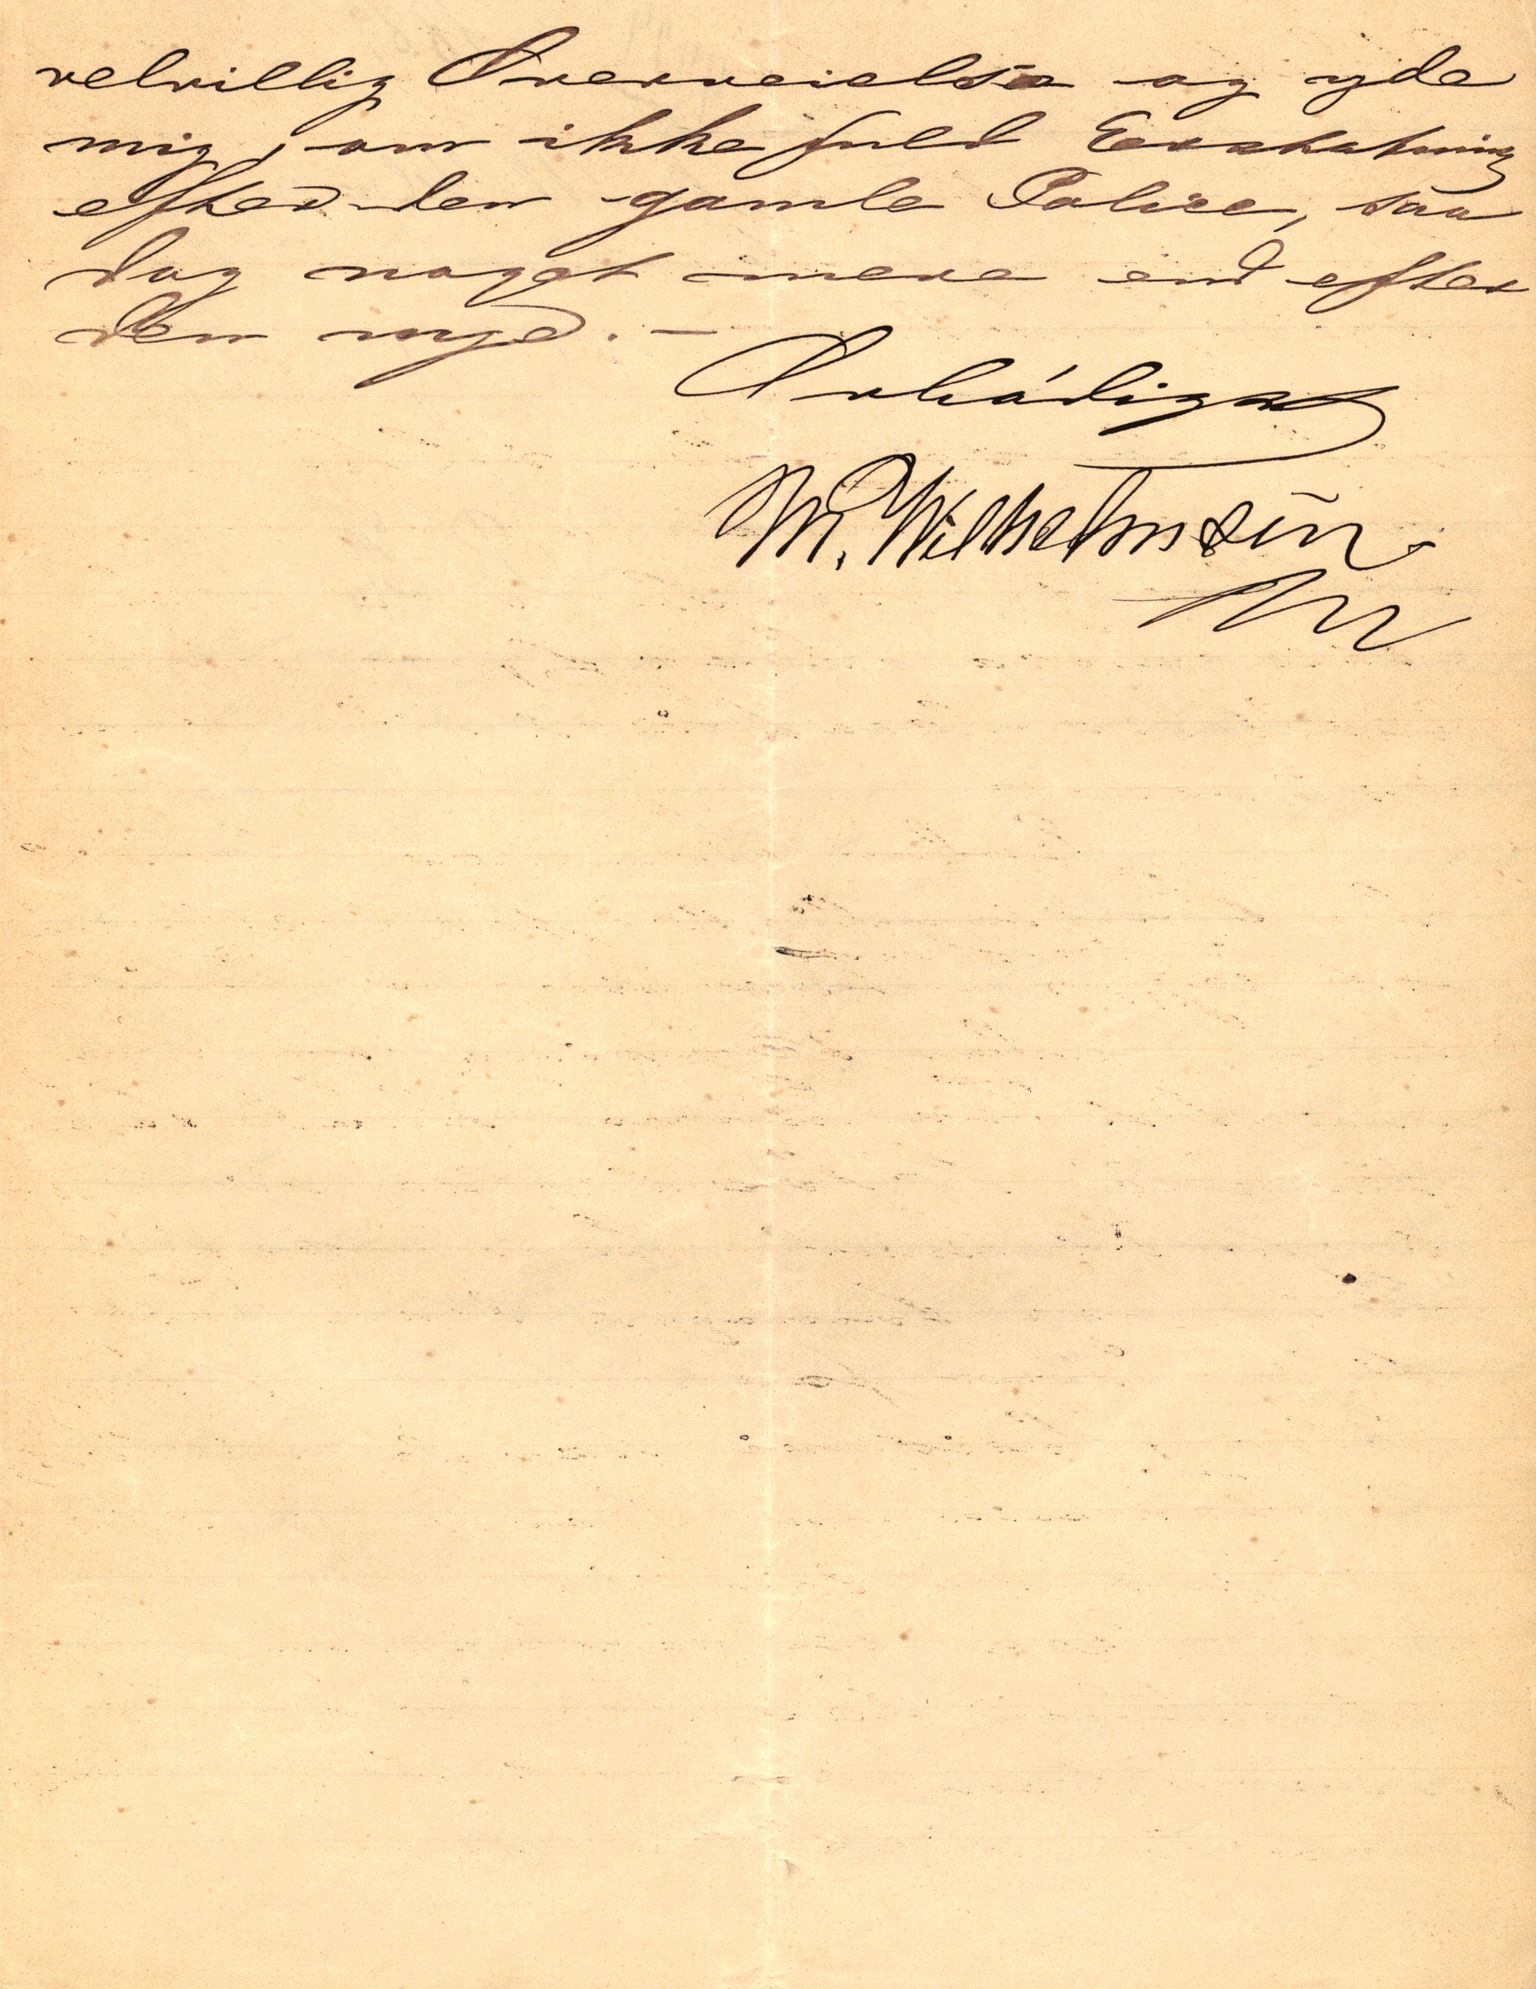 velvillig Overveielse og yde
mig, om ikke fuld Erstatning
efter den gamle Police, saa
dog noget mere end efter
den nye. —
Ærbødigst
M. Wilhelmsen